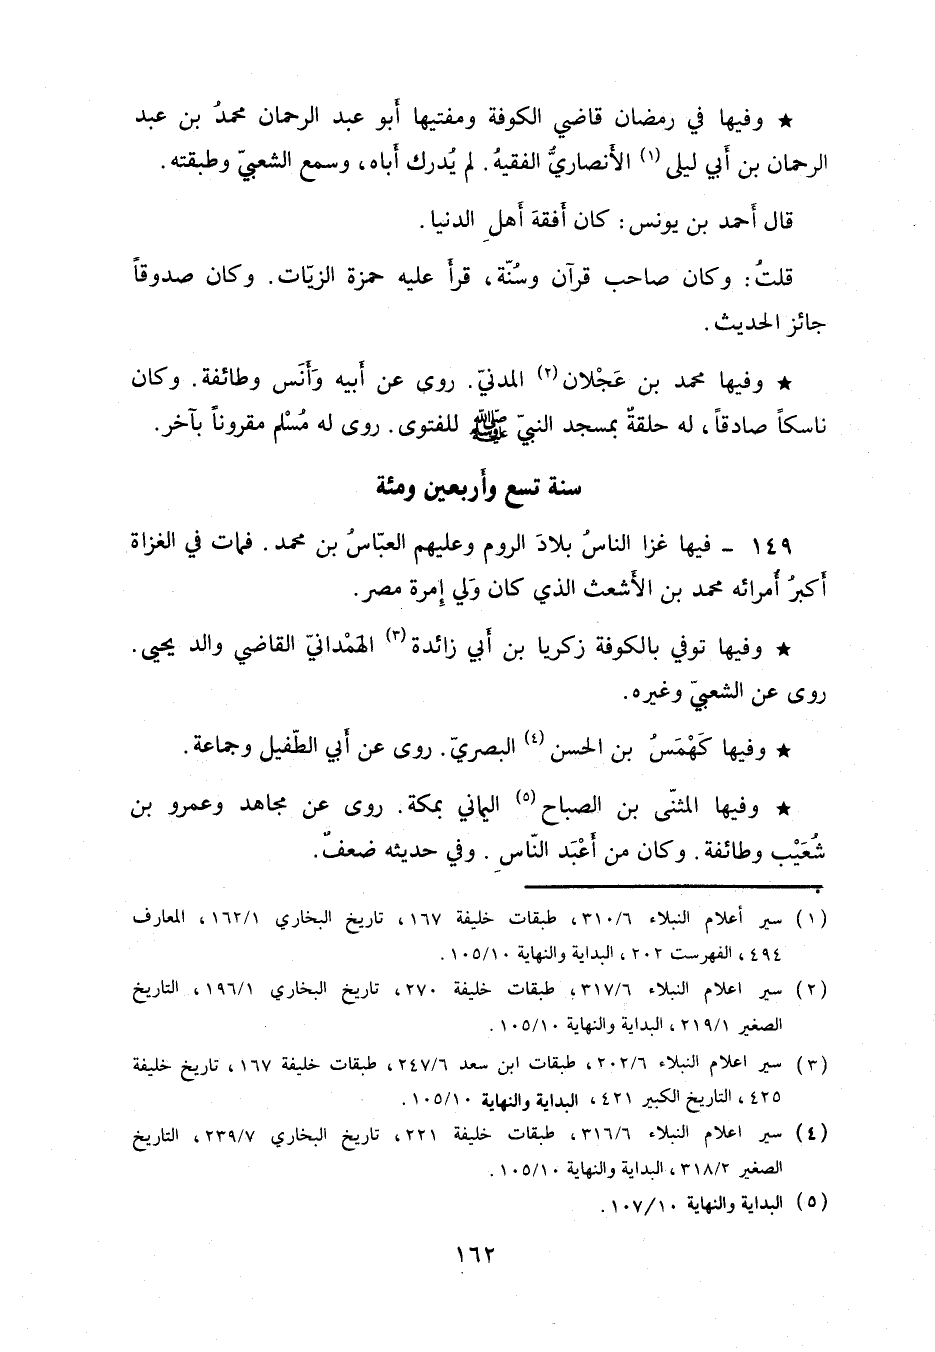 ★ وفيها في رمضان قاضي الكوفة ومفتيها أبو عبد الرحمان محمدُ بن عبد
الرحمان بن أبي ليلى (١) الأنصاريُّ الفقيهُ. لم يُدرك أباه، وسمع الشعبيّ وطبقته.
قال أحمد بن يونس: كان أفقهَ أهلِ الدنيا.
قلتُ: وكان صاحب قرآن وسُنّة، قرأ عليه حمزة الزيّات. وكان صدوقاً
جائز الحديث.
★ وفيها محمد بن عَجْلان (٢) المدنيّ. روى عن أبيه وَأَنَس وطائفة. وكان
ناسكاً صادقاً، له حلقةٌ بمسجد النبيّ ﷺ للفتوى. روى له مُسْلم مقروناً بآخر.
سنة تسع وأربعين ومئة
١٤٩ - فيها غزا الناسُ بلادَ الروم وعليهم العبّاسُ بن محمد. فمات في الغزاة
أكبرُ أُمرائه محمد بن الأشعث الذي كان وَلي إمرة مصر.
★ وفيها توفي بالكوفة زكريا بن أبي زائدة (٣) الهَمْدانيّ القاضي والد يحيى.
روى عن الشعبيّ وغيره.
★ وفيها كَهْمَسُ بن الحسن (٤) البصريّ. روى عن أبي الطّفيل وجماعة.
★ وفيها المثنّى بن الصباح (٥) اليماني بمكة. روى عن مجاهد وعمرو بن
شُعَيْب وطائفة. وكان من أَعْبَد النّاسِ. وفي حديثه ضعفٌ.
(١) سير أعلام النبلاء ٣١٠/٦، طبقات خليفة ١٦٧، تاريخ البخاري ١٦٢/١، المعارف
٤٩٤، الفهرست ٢٠٢، البداية والنهاية ١٠٥/١٠.
(٢) سير اعلام النبلاء ٣١٧/٦، طبقات خليفة ٢٧٠، تاريخ البخاري ١٩٦/١، التاريخ
الصغير ٢١٩/١، البداية والنهاية ١٠٥/١٠.
(٣) سير اعلام النبلاء ٢٠٢/٦، طبقات ابن سعد ٢٤٧/٦، طبقات خليفة ١٦٧، تاريخ خليفة
٤٢٥، التاريخ الكبير ٤٢١، البداية والنهاية ١٠٥/١٠.
(٤) سير اعلام النبلاء ٣١٦/٦، طبقات خليفة ٢٢١، تاريخ البخاري ٢٣٩/٧، التاريخ
الصغير ٣١٨/٢، البداية والنهاية ١٠٥/١٠.
(٥) البداية والنهاية ١٠٧/١٠.
١٦٢